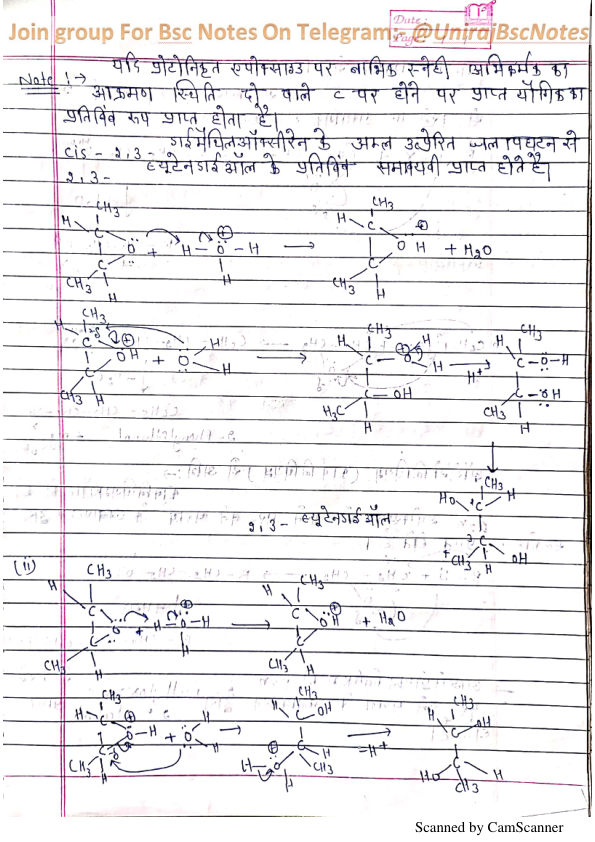 Join group For Bsc Notes On Telegram:- @UnirajBscNotes
Date :
Page :
Note :→ यदि प्रोटोनिकृत एपोक्साइड पर नाभिक स्नेही अभिकर्मक का
आक्रमण स्थिति दो वाले C पर होने पर प्राप्त यौगिक का
प्रतिबिंब रूप प्राप्त होता है।
cis - 2,3 - डाईमेथिलऑक्सीरेन के अम्ल उत्प्रेरित जल अपघटन से
2,3- ब्यूटेनडाईऑल के प्रतिबिंब समावयवी प्राप्त होते है।
CH3 H C O + H-O-H H ⊕ → CH3 H C OH ⊕ + H2O
CH3 C H CH3 C H
CH3 H C OH ⊕ + O H H → CH3 H C-O H H ⊕ → H+ CH3 H C-O-H
CH3 C H H3C C-OH H CH3 C-OH H
HO C CH3 H
2,3- ब्यूटेनडाईऑल
CH3 C H OH
(ii) CH3 H C O + H-O-H H ⊕ → CH3 H C OH ⊕ + H2O
CH3 C H CH3 C H
CH3 H C O-H ⊕ + O H H → CH3 H C OH → -H+ CH3 H C OH
CH3 C H H-O H ⊕ C H CH3 HO C H CH3
Scanned by CamScanner